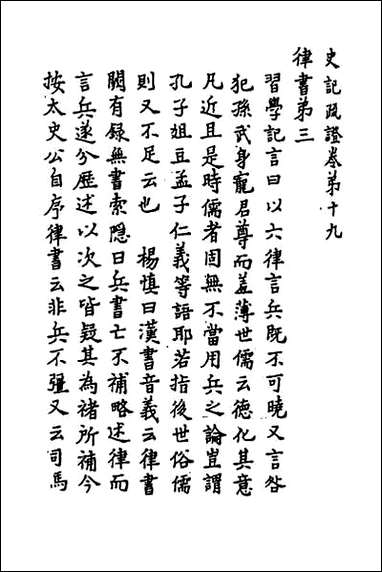 史記疏證卷第十九
律書第三
習學記言曰以六律言兵既不可曉又言咎
犯孫武身寵君尊而羞薄世儒云德化其意
凡近且是時儒者固無不當用兵之論豈謂
孔子姐豆孟子仁義等語耶若指後世俗儒
則又不足云也　楊慎曰漢書音義云律書
闕有録無書索隱曰兵書亡不補略述律而
言兵遂分歷述以次之皆疑其為禇所補今
按太史公自序律書云非兵不彊又云司馬